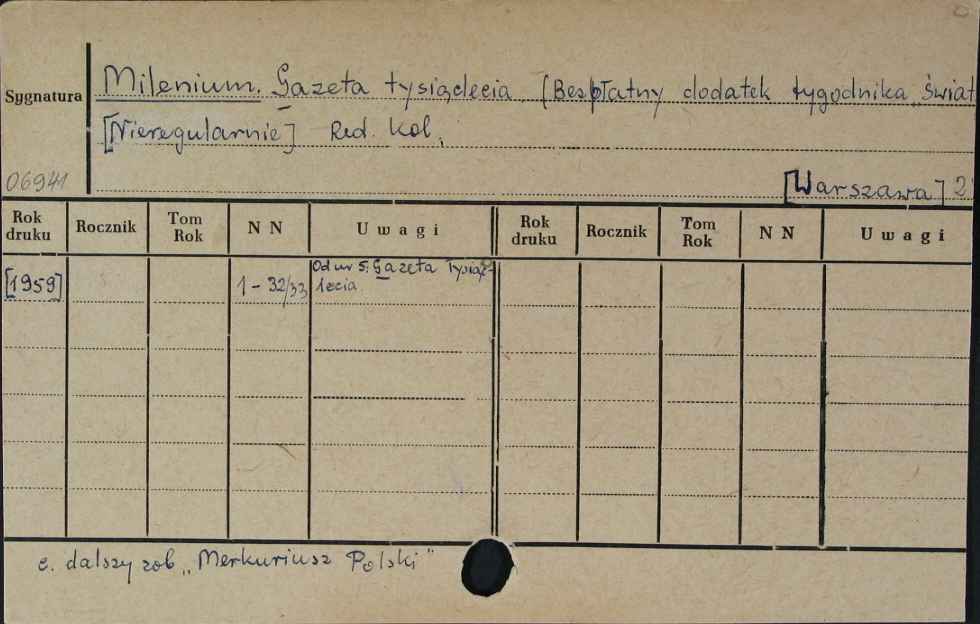 Sygnatura Milenium. Gazeta tysiąclecia. [Bezpłatny dodatek tygodnika „Świat
[Nieregularnie] Red. Kol.
06941 [Warszawa] 2
Rok druku Rocznik Tom Rok N N Uwagi Rok druku Rocznik Tom Rok N N Uwagi
[1959] 1-32/33 Od nr 5: Gazeta Tysiąc-
lecia
c. dalszy zob „Merkuriusz Polski"